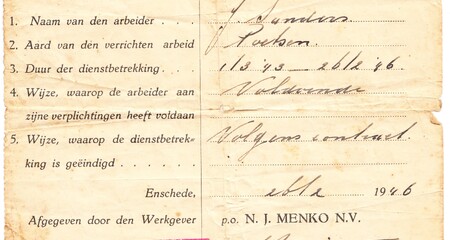 1. Naam van den arbeider . . . J. Sanders.
2. Aard van den verrichten arbeid Poetsen.
3. Duur der dienstbetrekking. . . 1/3 '43 – 26/2 '46.
4. Wijze, waarop de arbeider aan Voldoende
zijne verplichtingen heeft voldaan
5. Wijze, waarop de dienstbetrek- Volgens contract.
king is geëindigd . . . . . .
Enschede, 26/2 1946
Afgegeven door den Werkgever p.o. N. J. MENKO N.V.